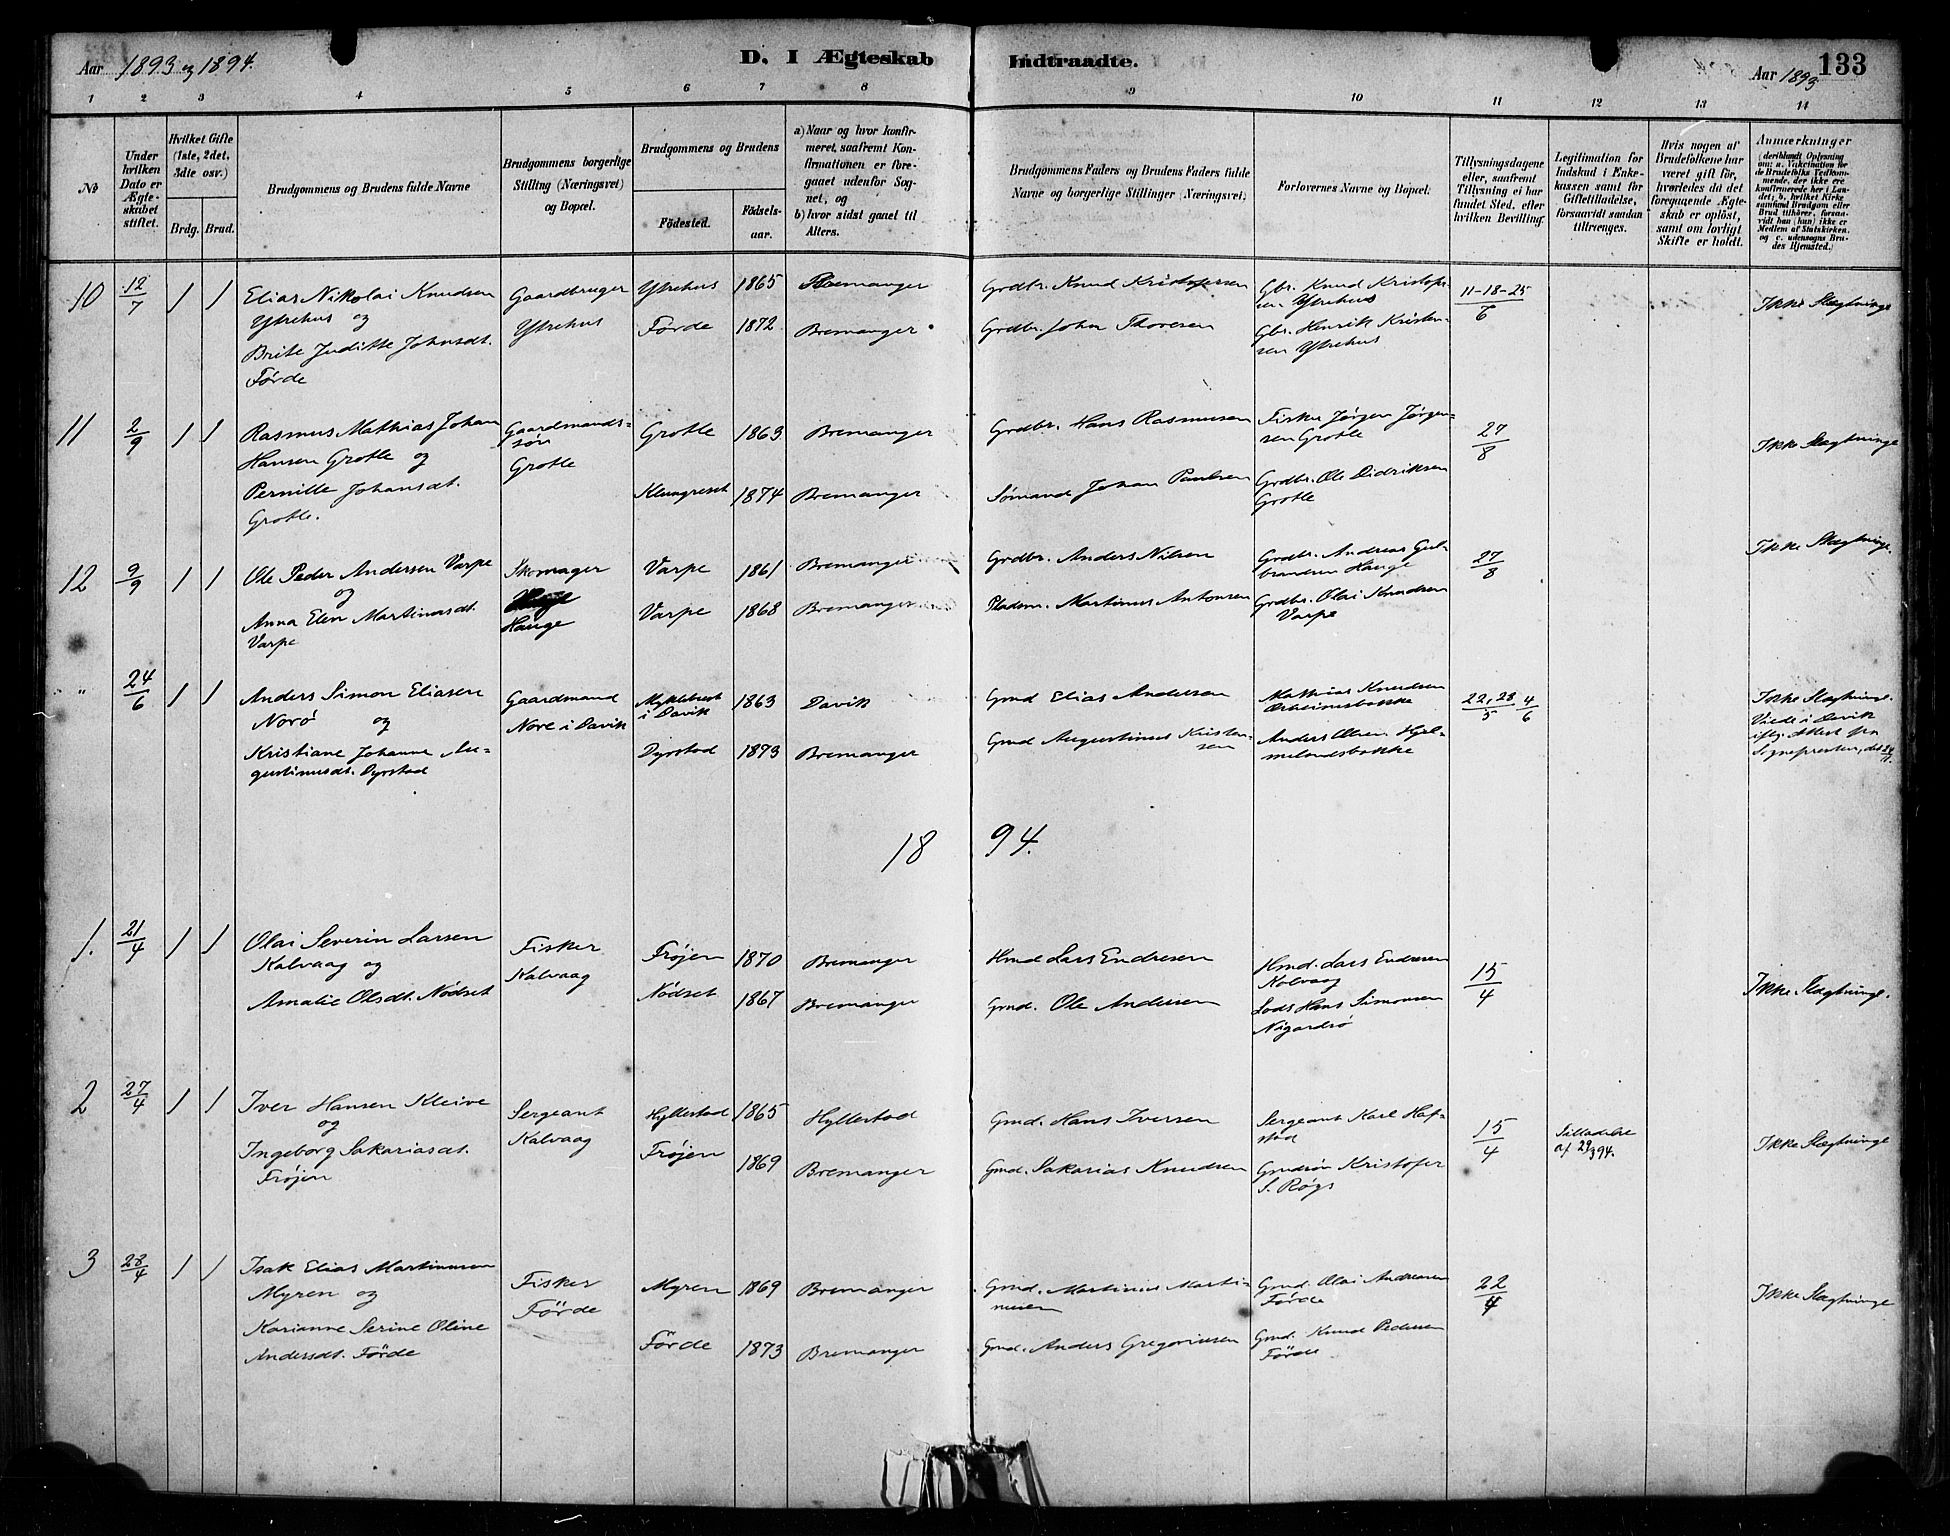 Aar 1893 og 1894.
D. I Ægteskab Indtraadte.
Aar 1893
133
1 2 3 4 5 6 7 8 9 10 11 12 13 14
No
Under hvilken Dato er Ægteskabet stiftet.
Hvilket Gifte (1ste, 2det, 3die osv.)
Brdg. Brud.
Brudgommens og Brudens fulde Navne
Brudgommens borgerlige Stilling (Næringsvei) og Bopæl.
Brudgommens og Brudens
Fødested.
Fødselsaar.
a) Naar og hvor konfirmeret, saafremt Konfirmationen er foregaaet udenfor Sognet, og
b) hvor sidst gaaet til Alters.
Brudgommens Faders og Brudens Faders fulde Navne og borgerlige Stillinger (Næringsvei).
Forlovernes Navne og Bopæl.
Tillysningsdagene eller, saafremt Tillysning ei har fundet Sted, efter hvilken Bevilling.
Legitimation for Indskud i Enkekassen samt for Giftetilladelse, forsaavidt saadan tiltrænges.
Hvis nogen af Brudefolkene har været gift før, hvorledes da det foregaaende Ægteskab er opløst, samt om lovligt Skifte er holdt.
Anmærkninger
(deriblandt Oplysning om: a. Vakcination for de Brudefolks Vedkommende, der ikke ere konfirmerede her i Landet; b. hvilket Kirkesamfund Brudgom eller Brud tilhører, forsaavidt han (hun) ikke er Medlem af Statskirken, og c. udensogns Brudes Hjemsted.)
10 12/7 1 1 Elias Nikolai Knudsen Gaardbruger Ytrehus 1865 Bremanger Grdbr. Knud Kristofersen Gbr. Knud Kristofersen Ytrehus 11-18-25/6 Ikke Slægtninge
Ytrehus og Ytrehus
Brite Juditte Johnsdt. Førde 1872 Bremanger Grdbr. John Thoresen Gbr. Henrik Kristensen Ytrehus
Førde
11 2/9 1 1 Rasmus Mathias Johan Gaardmandssøn Grotle 1863 Bremanger Grdbr. Hans Rasmusen Fisker Jørgen Jørgensen Grotle 27/8 Ikke Slægtninge
Hansen Grotle og Grotle
Pernille Johansdt. Klungreset 1874 Bremanger Sømand Johan Paulsen Grdbr. Ole Didriksen Grotle
Grotle.
12 9/9 1 1 Ole Peder Andersen Varpe Skomager Varpe 1861 Bremanger Grdbr. Anders Nilsen Grdbr. Andreas Gulbrandsen Hauge 27/8 Ikke Slægtninge.
og
Anna Elen Martinusdt. Hauge Varpe 1868 Bremanger Pladsm. Martinus Antonsen Grdbr. Olai Knudsen Varpe
Varpe
" 24/6 1 1 Anders Simon Eliasen Gaardmand Myklebust i Davik 1863 Davik Gmd Elias Andersen Mathias Knudsen 22, 28/5 4/6 Ikke Slægtninge.
Norö og Nore i Davik Viede i Davik
Kristiane Johanne Augustinusdt. Dyrstad Dyrstad 1873 Bremanger Gmd Augustinus Kristensen Anders Olsen Hjelmelandsbakke iflg. Attest fra Sognepresten, det
18 94.
1. 21/4 1 1 Olai Severin Larsen Fisker Frøjen 1870 Bremanger Hmd Lars Endresen Hmd. Lars Endresen Kalvaag 15/4 Ikke Slægtninge.
Kalvaag og Kalvaag
Amalie Olsdt. Nødset Nødset 1867 Bremanger Gmd. Ole Andersen Lods Hans Simonsen Nigardsø
2 27/4 1 1 Iver Hansen Kleive Sergeant Hyllestad 1865 Hyllestad Gmd. Hans Iversen Sergeant Karl Hafstad 15/4 Tilladelse af 29/3 94. Ikke Slægtninge
og Kalvaag
Ingeborg Sakariasdt. Frøjen 1869 Bremanger Gmd. Sakarias Knudsen Gmdsøn Kristofer S. Røgs
Frøjen
3 28/4 1 1 Isak Elias Martinusen Fisker Myren 1869 Bremanger Gmd. Martinus Martinusen Gmd. Olai Andreasen Førde 22/4 Ikke Slægtninge
Myren og Førde
Karianne Serine Oline Førde 1873 Bremanger Gmd. Anders Gregoriusen Gmd. Knud Pedersen Førde
Andersdt. Førde